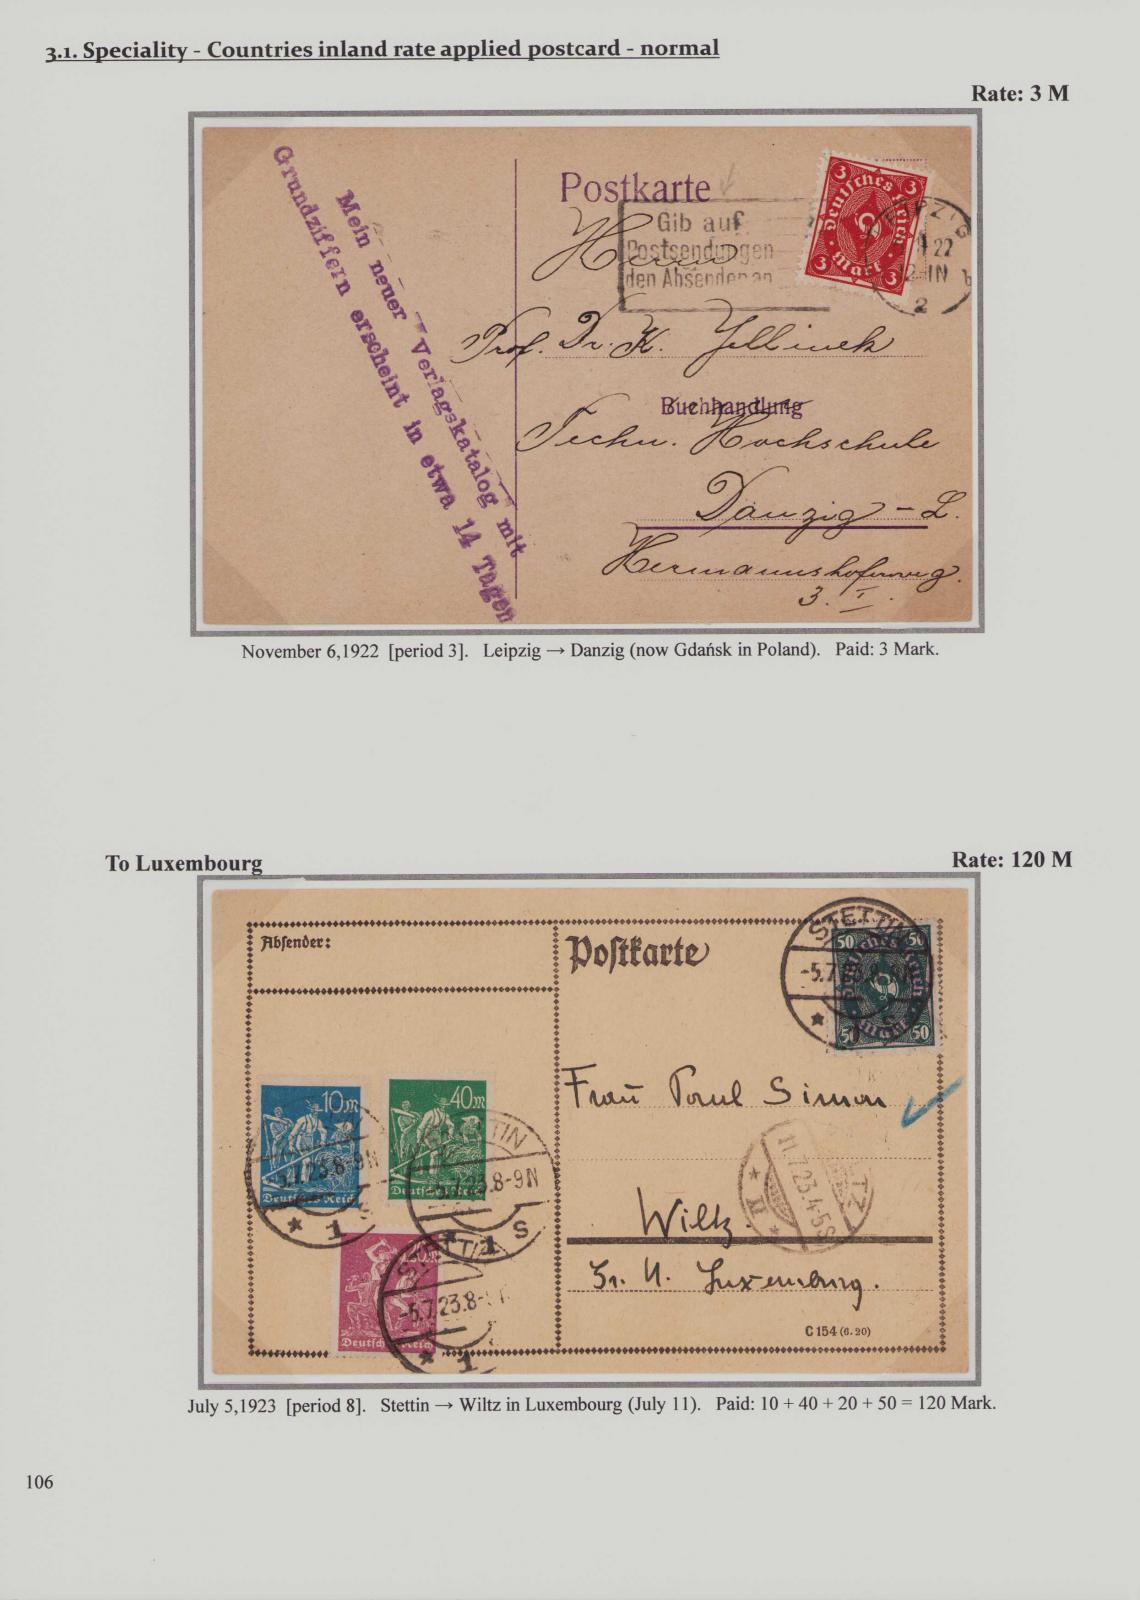 3.1. Speciality - Countries inland rate applied postcard - normal
Rate: 3 M
Mein neuer Verlagskatalog mit
Grundziffern erscheint in etwa 14 Tagen
Postkarte
Gib auf
Postsendungen
den Absender an
3 Deutsches Reich 3
3 Mark 3
LEIPZIG
22
12-1N
2
b
Herrn
Prof. Dr. K. Jellinek
Buchhandlung
Techn. Hochschule
Danzig - L.
Hermannshöferweg.
3. I.
November 6,1922 [period 3]. Leipzig → Danzig (now Gdańsk in Poland). Paid: 3 Mark.
To Luxembourg
Rate: 120 M
Absender:
Postkarte
STETTIN
-5.7.23.8-9N
50 Deutsches Reich 50
50 Mark 50
10 M
Deutsches Reich
40 M
Deutsches Reich
STETTIN
-5.7.23.8-9N
* 1 S
Deutsches Reich
STETTIN
-5.7.23.8-
* 1
Frau Paul Simon
11.7.23.4-5S
Wiltz.
Gr. H. Luxemburg.
C 154 (6. 20)
July 5,1923 [period 8]. Stettin → Wiltz in Luxembourg (July 11). Paid: 10 + 40 + 20 + 50 = 120 Mark.
106